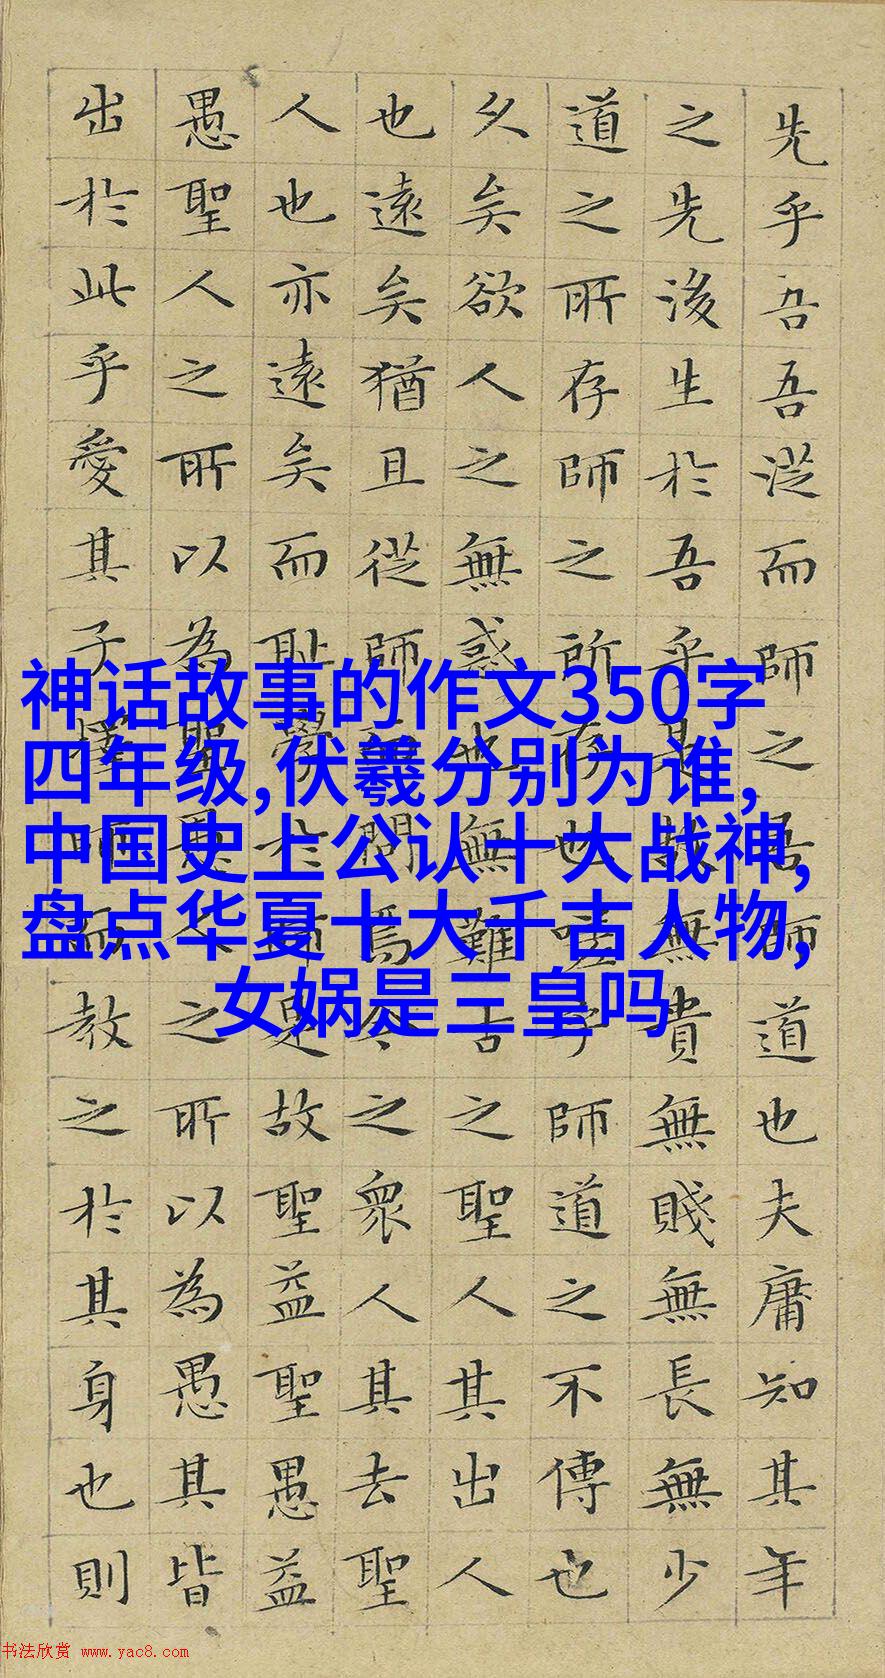 先乎吾吾從而師之吾師道也夫庸知其年
之先後生於吾乎是故無貴無賤無長無少
道之所存師之所存也嗟乎師道之不傳也
久矣欲人之無惑也無難古之聖人其出人
也遠矣猶且從師而問焉今之眾人其去聖
人也亦遠矣而恥學於師是故聖益聖愚益
愚聖人之所以為聖愚人之所以為愚其皆
出於此乎愛其子擇師而教之於其身也則
神话故事的作文350字
四年级,伏羲分别为谁,
中国史上公认十大战神,
盘点华夏十大千古人物,
女娲是三皇吗
书法欣赏 www.yac8.com